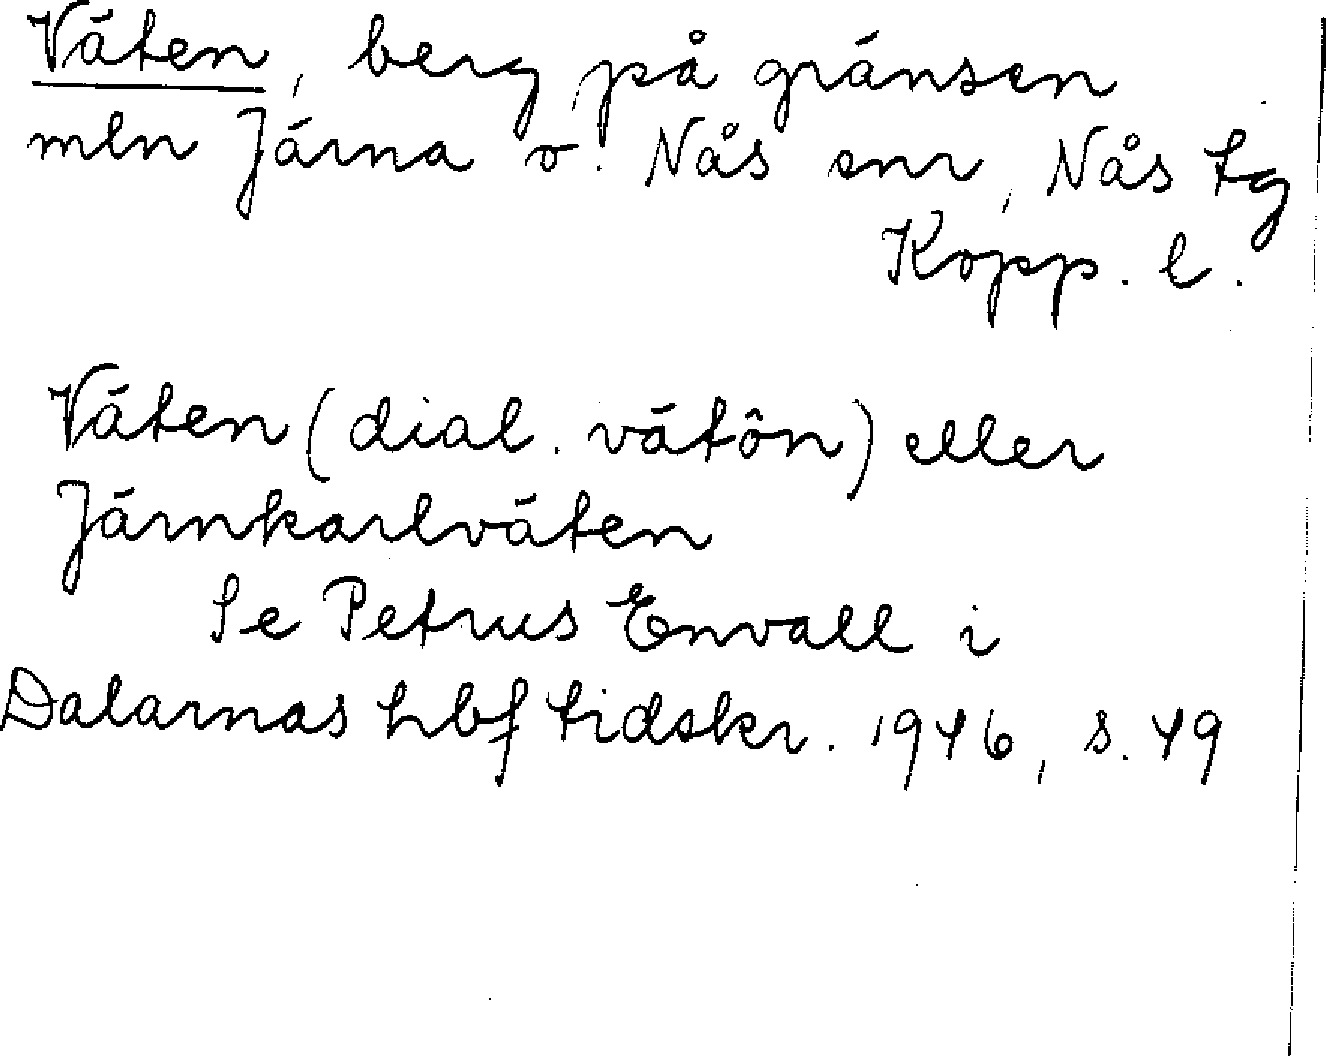 Väten, berg på gränsen
mln Järna o. Nås snr, Nås tg
Kopp. l.
Väten (dial. vätôn) eller
Järnkarlväten
Se Petrus Envall i
Dalarnas hbf tidskr. 1946, s. 49